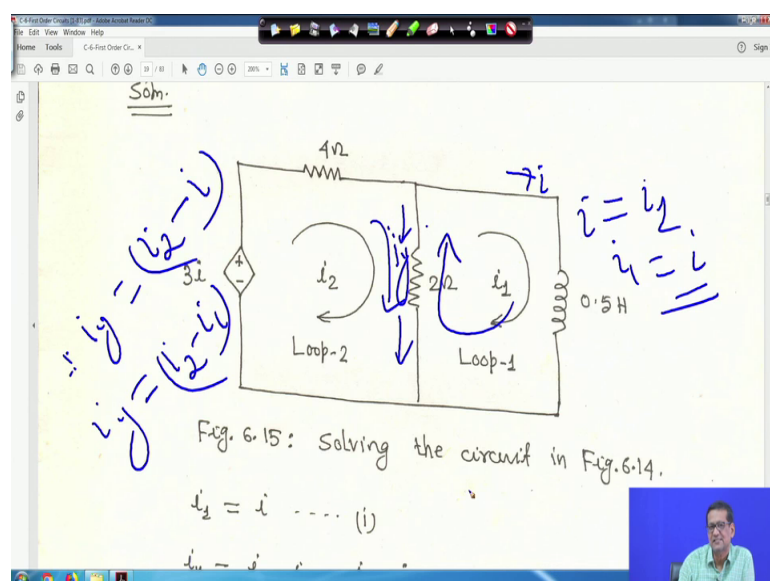 C-6-First Order Circuits (1-83).pdf - Adobe Acrobat Reader DC
File Edit View Window Help
Home Tools C-6-First Order Cir... × Sign
19 / 83 200%
Soln.
4Ω
→ i
i = i1
i1 = i
3i
+
-
i2
iy
2Ω
i1
0.5H
∴ iy = (i2 - i)
iy = (i2 - i1)
Loop-2
Loop-1
Fig. 6.15: Solving the circuit in Fig. 6.14.
i1 = i .... (i)